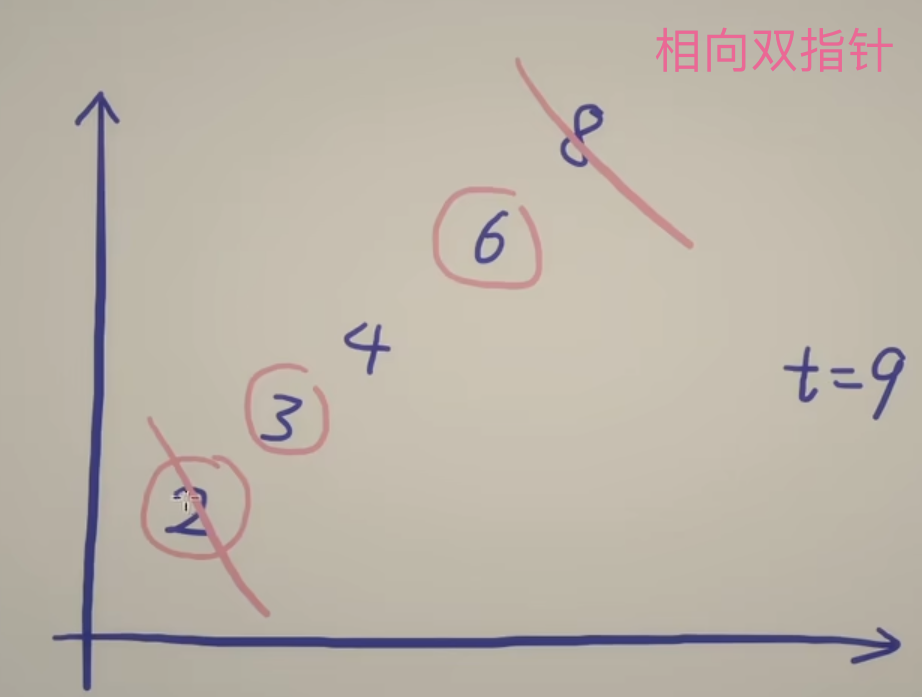 相向双指针
8
6
4
t=9
3
2